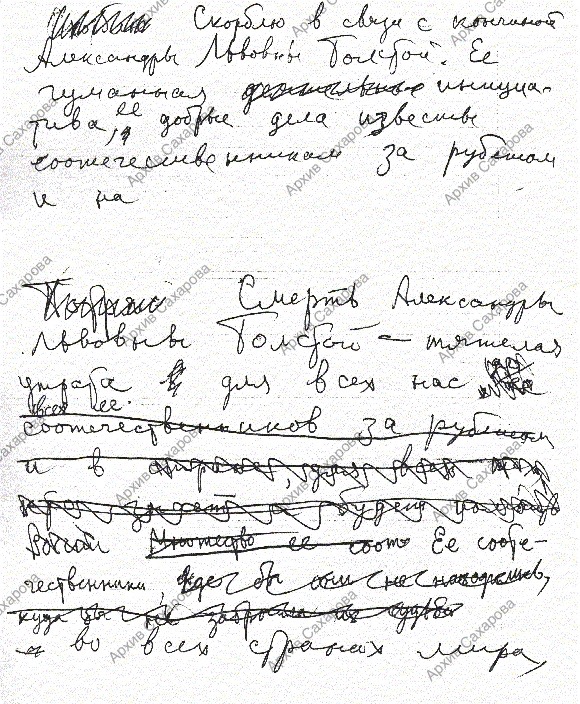 Скорблю в связи с кончиной
Александры Львовны Толстой. Ее
гуманная инициа-
тива, ее добрые дела известны
соотечественникам за рубежом
и на
Смерть Александры
Львовны Толстой — тяжелая
утрата для всех нас
всех ее
соотечественников за рубежом
и в
ее соот Ее сооте-
чественники, где бы они не находились,
куда бы их забросила их судьба
во всех странах мира,
Архив Сахарова